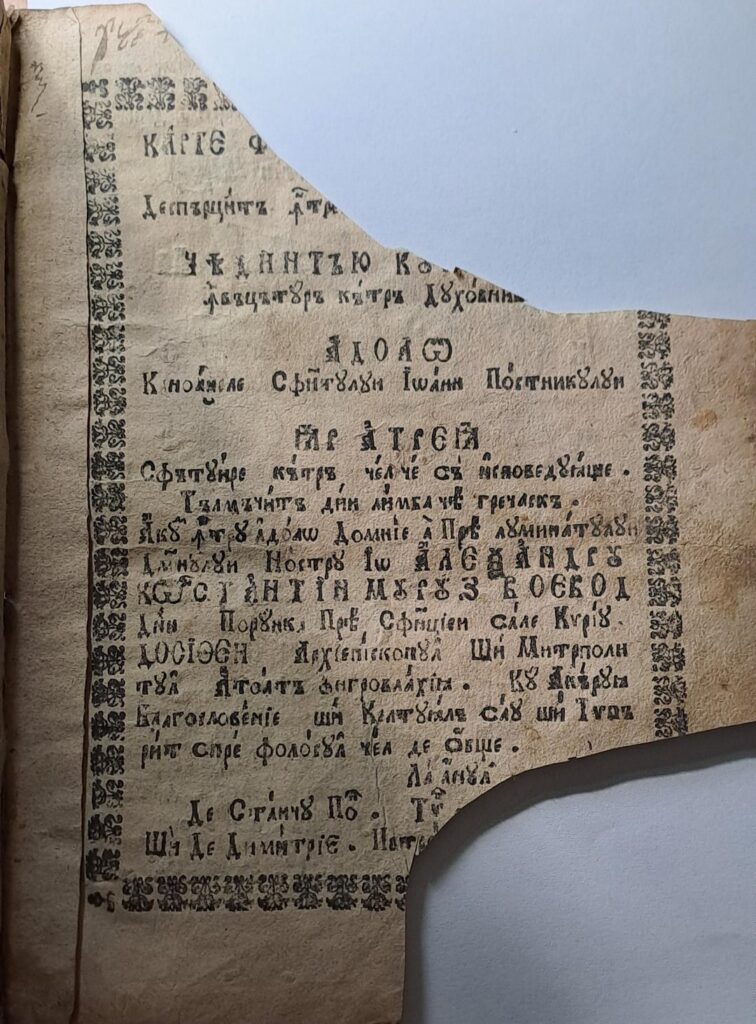 КАРТЕ Ф
Деспърцитъ ꙟтр
ЧЕ ДИНТЪЮ КУ
ꙟвъцътꙋръ кътръ Дꙋховник
АДОАѠ
Каноанеле Сфꙟтꙋлꙋи Іѡанн Постникꙋлꙋи
ꙖР АТРЕꙖ
Сфътꙋире кътръ чел че съ исповедꙋꙗще .
Тълмъчитъ дин лимба чѣ гречаскъ .
Акꙋм ꙟтрꙋ адоаѡ Домніе а Прѣ лꙋминатꙋлꙋи
Домнꙋлꙋи Нострꙋ Іѡ АЛЕѮАНДРꙊ
КѠСТАНТІН МꙊРꙊЗ ВОЕВОД
Дин Порꙋнка Прѣ Сфинціеи сале Кѵрію .
ДОСІѲЕИ Архіепископꙋл Ши Митрполи
тꙋл Атоатъ ꙋнгровлахіꙗ . Кꙋ Акърꙋꙗ
Благословеніе ши Келтꙋꙗлъ сау ши Тѵпъ
рит спре фолосꙋл чел де ѡбще .
Ла анꙋл
Де Станчꙋ По . Тѵ
Ши Де Димитріе . Петр